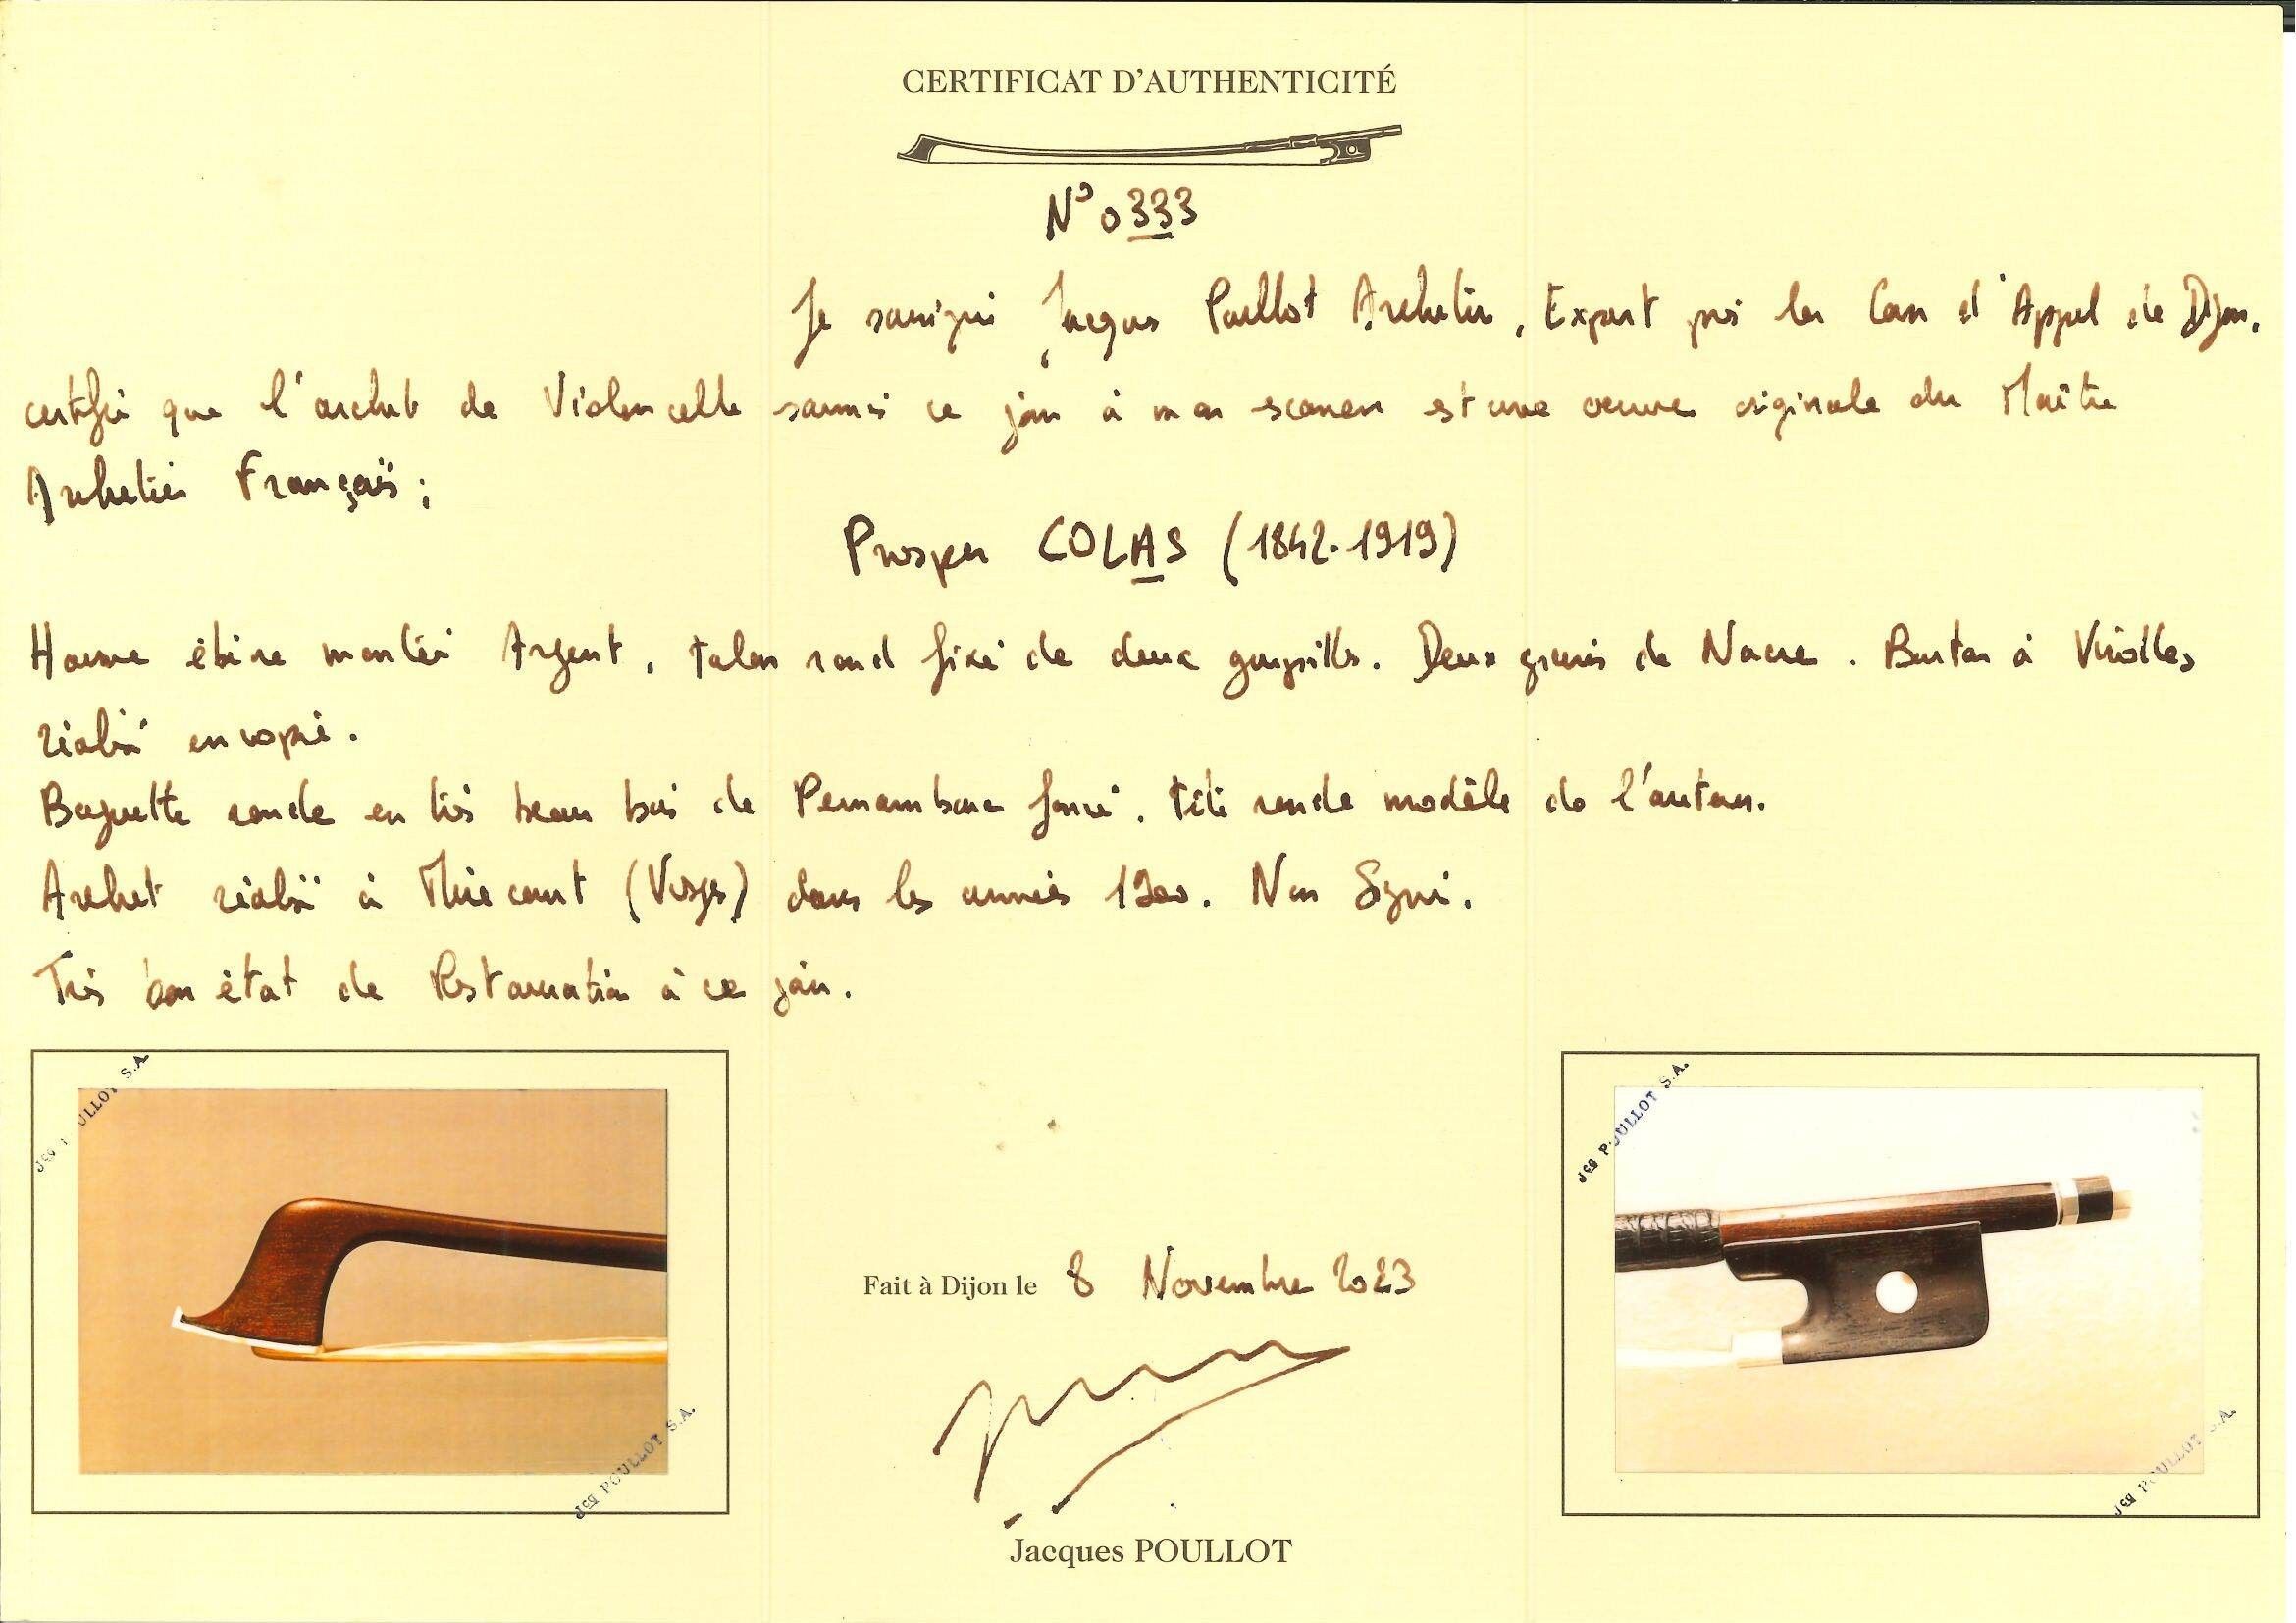 CERTIFICAT D'AUTHENTICITÉ
N° 0333
Je soussigné Jacques Poullot Archetier, Expert près la Cour d'Appel de Dijon,
certifie que l'archet de Violoncelle soumis ce jour à mon examen est une oeuvre originale du Maître
Archetier Français ;
Prosper COLAS (1842-1919)
Hausse ébène montée Argent, talon rond fixé de deux goupilles. Deux grains de Nacre. Bouton à Virolles
réalisé en copie.
Baguette ronde en très beau bois de Pernambouc foncé. tête ronde modèle de l'auteur.
Archet réalisé à Mirecourt (Vosges) dans les années 1900. Non Signé.
Très bon état de Restauration à ce jour.
JCQ POULLOT S.A.
JCQ POULLOT S.A.
Fait à Dijon le 8 Novembre 2023
JCQ POULLOT S.A.
JCQ POULLOT S.A.
Jacques POULLOT